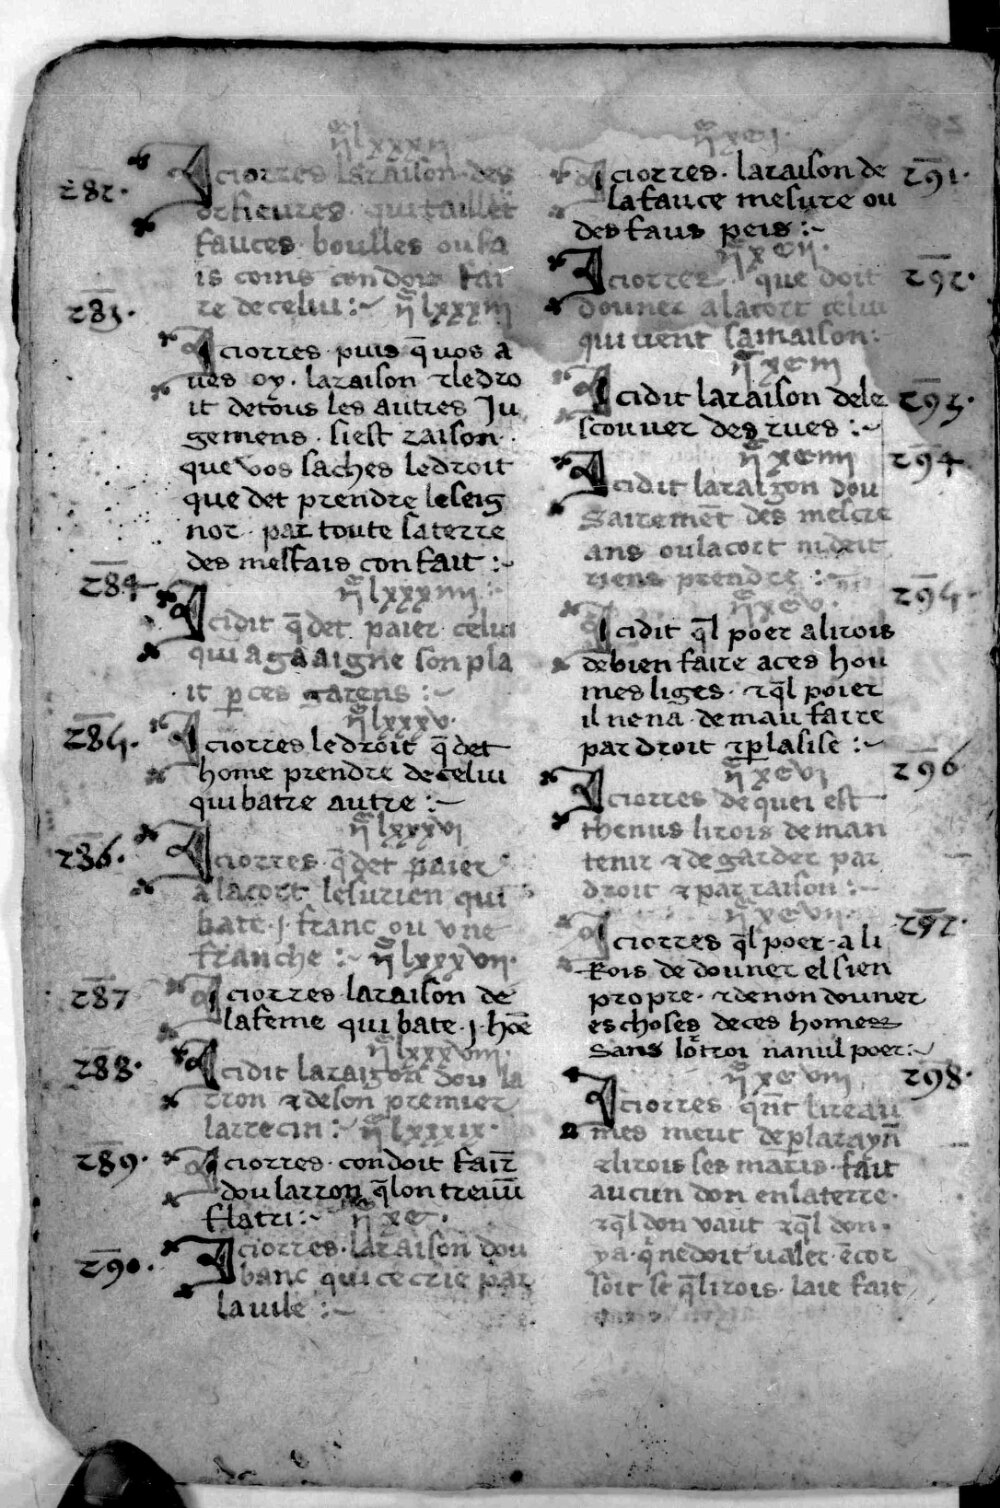 ij̄ lxxxij
282· Iciorres laraison des
orfieures· qui taillēt
fauces boulles ou fa
is coins con doit fai
re de celui :~ ij̄ lxxxiij
283·
Iciorres· puis q̄ vos a
ues oy· laraison ⁊ ledro
it detous les autres Ju
gemens· si est raison·
que vos saches ledroit
que det prendre leseig
nor· par toute saterre
des mesfais con fait :~
284 ij̄ lxxxiiij
Icidit q̄ det paier celui
qui agaaigne son pla
it ꝑ ces garens :~
285· ij̄ lxxxv·
Iciorres le droit q̄ det
home prendre de celui
qui batre autre :~
ij̄ lxxxvi
286· Iciorres· q̄ det paier
a lacort lesurien qui
bate ·j· franc ou vne
franche :~ ij̄ lxxxvii·
287 Iciorres laraison de
lafeme qui bate ·j· hōe
ij̄ lxxxviii·
288· Icidit laraison dou la
rron ⁊ de son premier
larrecin :~ ij̄ lxxxix·
289· Iciorres· con doit fair̄
dou larron q̄ lon treuu̅
flatri :~ ij̄ xc·
290· Iciorres· laraison dou
banc qui ce crie par
la uile :~
ij̄ xcj·
Iciorres· laraison de 291·
la fauce mesure ou
des faus peis :~
ij̄ xcii·
Iciorrez que doit 292·
douner a lacort celui
qui uent samaison :
ij̄ xciii
Icidit laraison dele 293·
scouuer des rues :~
ij̄ xciiii 294·
Icidit laraizon dou
sairement des mescre
ans ou lacort ni deit
riens prendre :~
ij̄ xcv· 295·
Icidit q̄l poer a li rois
de bien faire a ces hou
mes liges· ⁊ q̄l poier
il ne na· de mau faire
par droit ⁊ ꝑ lasise :~
ij̄ xcvi 296
Iciorres de quei est
thenus li rois de man
tenir ⁊ de garder par
droit ⁊ par raison :~
ij̄ xcvii· 297·
Iciorres q̄l poer· a li
Rois de douner el sien
propre· ⁊ de non douner
es choses de ces homes
sans lotroi nanul poer :~
ij̄ xcviii 298·
Iciorres q̄nt li reau
mes meut de ꝑ larayn̄
⁊ li rois ses maris· fait
aucun don en la terre·
⁊ q̄l don vaut ⁊ q̄l don·
ya· q̄ ne doit ualer· ēcor
soit se q̄ li rois· laie fait